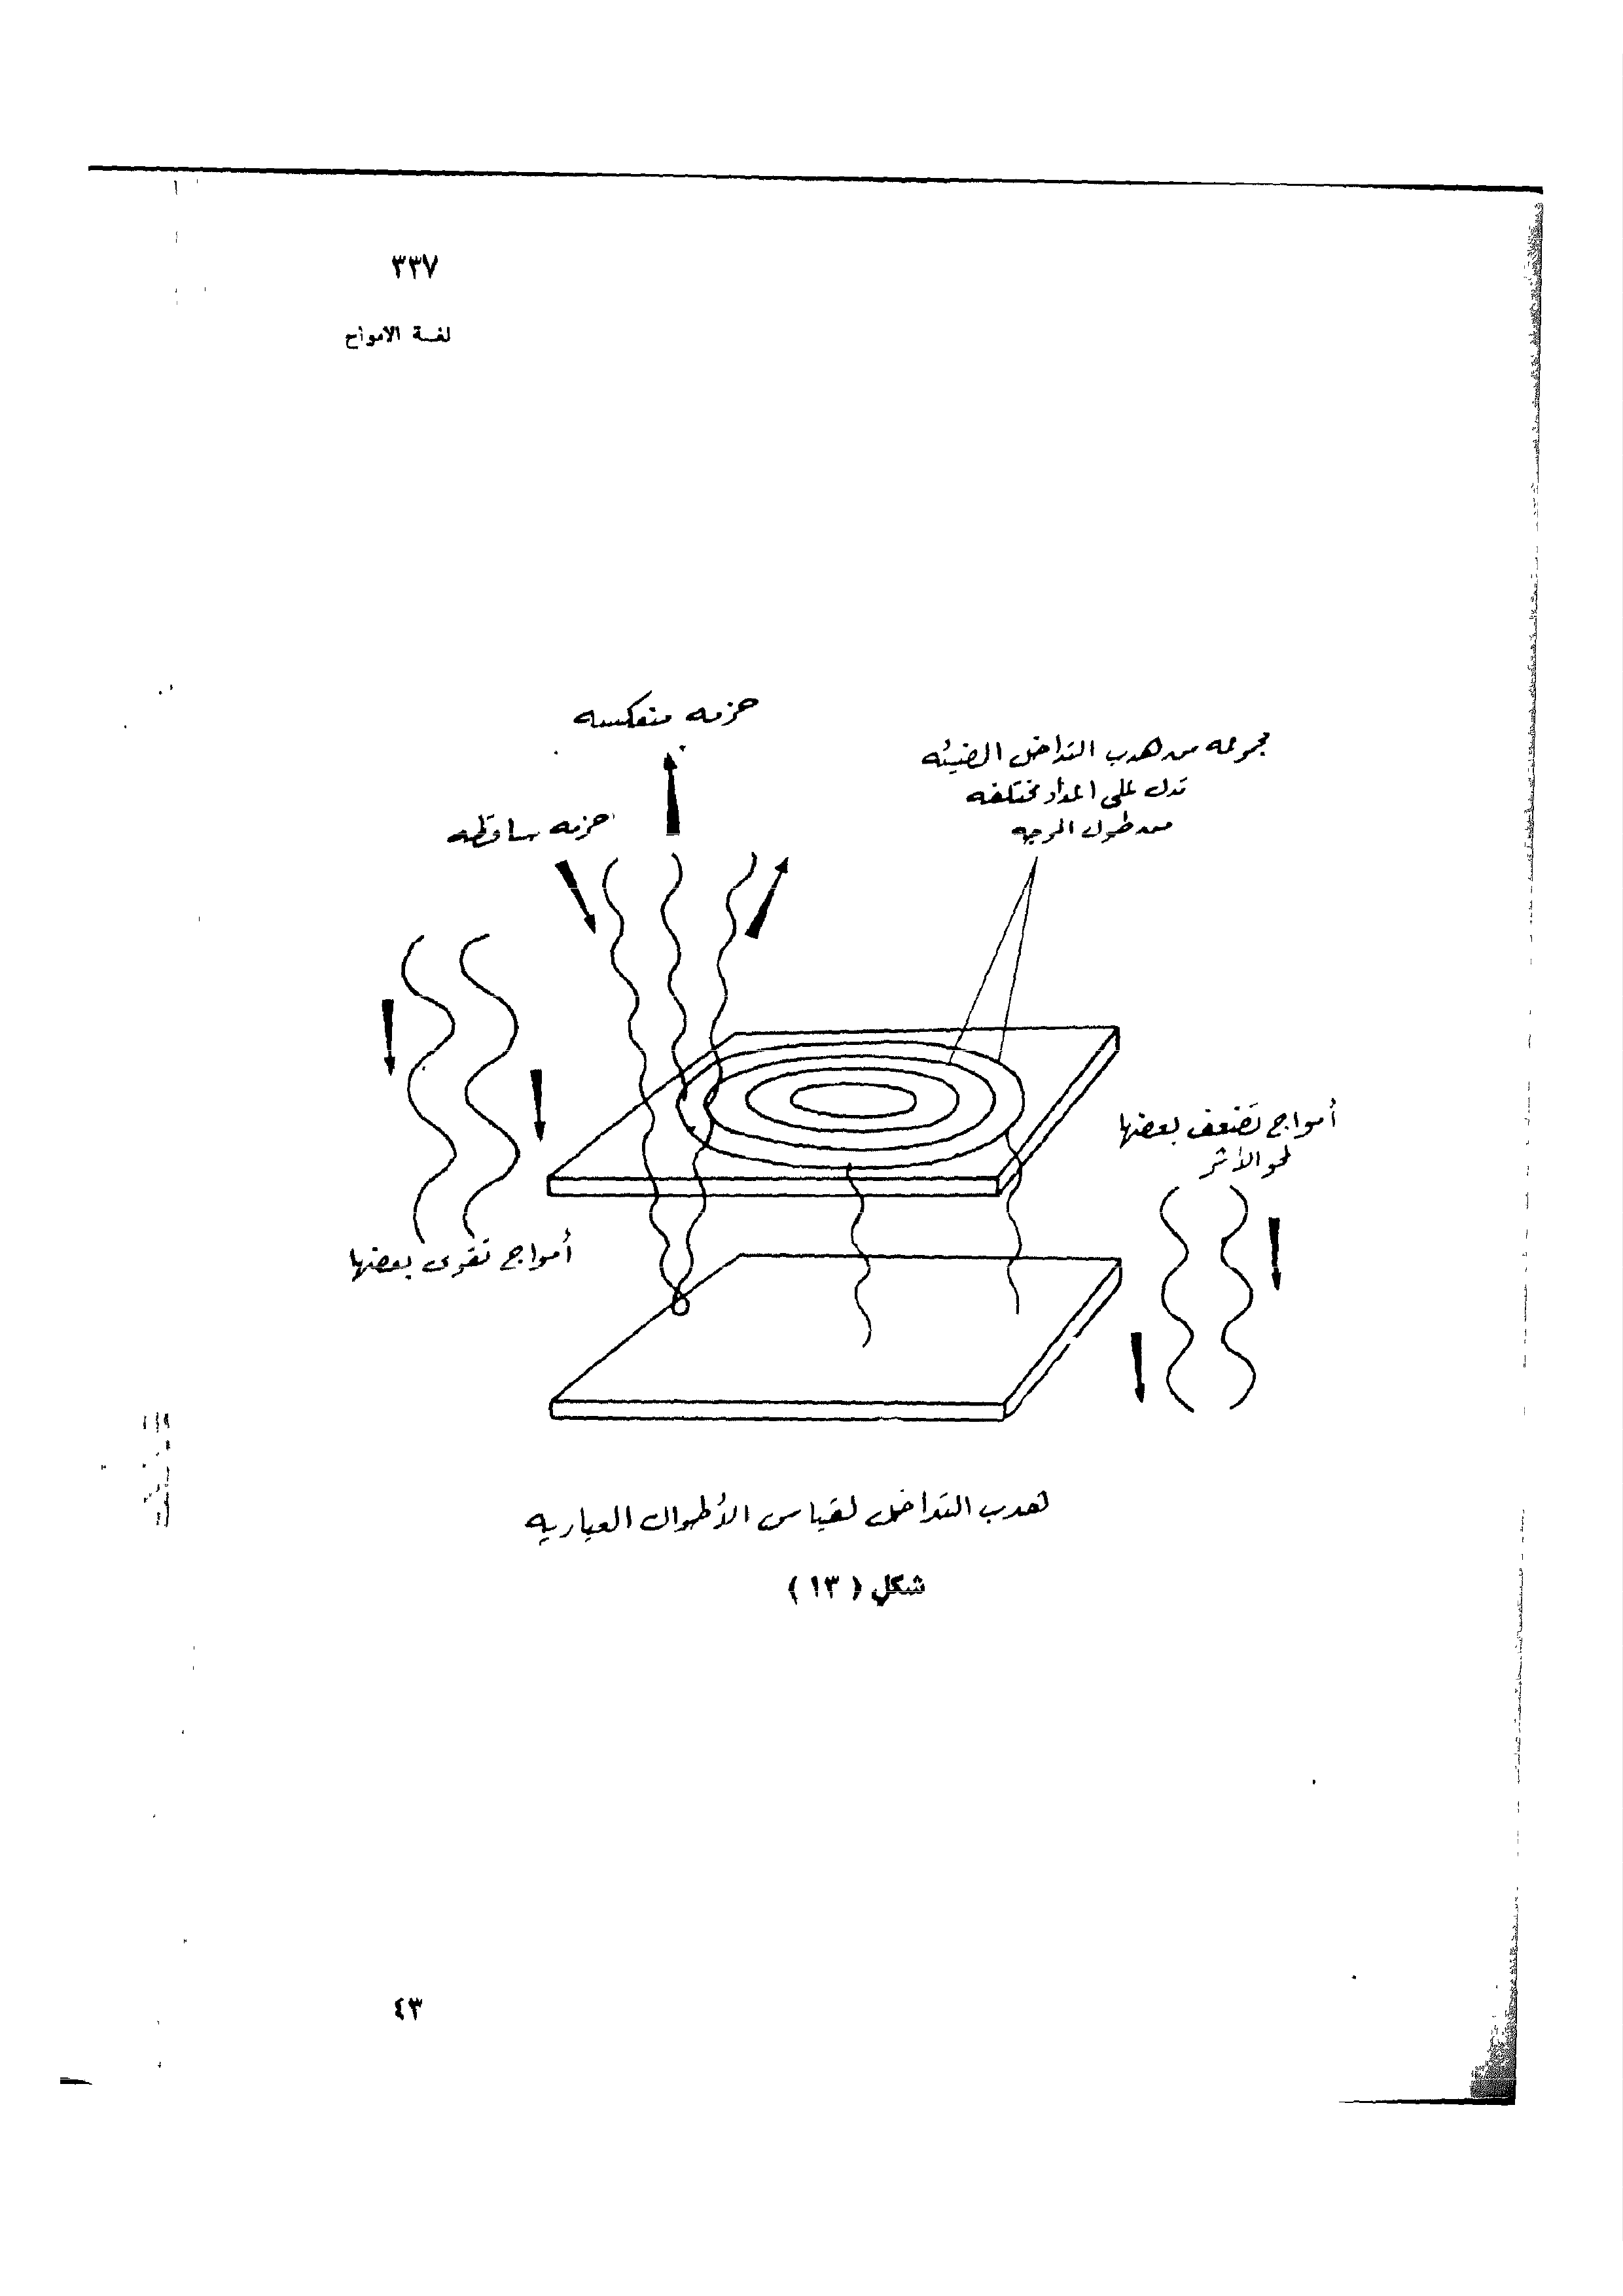 ٣٣٧
لغة الامواج
حزمه منعكسه
مجموعه من هدب التداخل المضيئه
تدل على اعداد مختلفه
من طول الموجه
حزمه ساقطه
أمواج تضعف بعضها
لمحو الأثر
أمواج تقوى بعضها
هدب التداخل لقياس الأطوال العياريه
شكل ( ١٣ )
٤٣